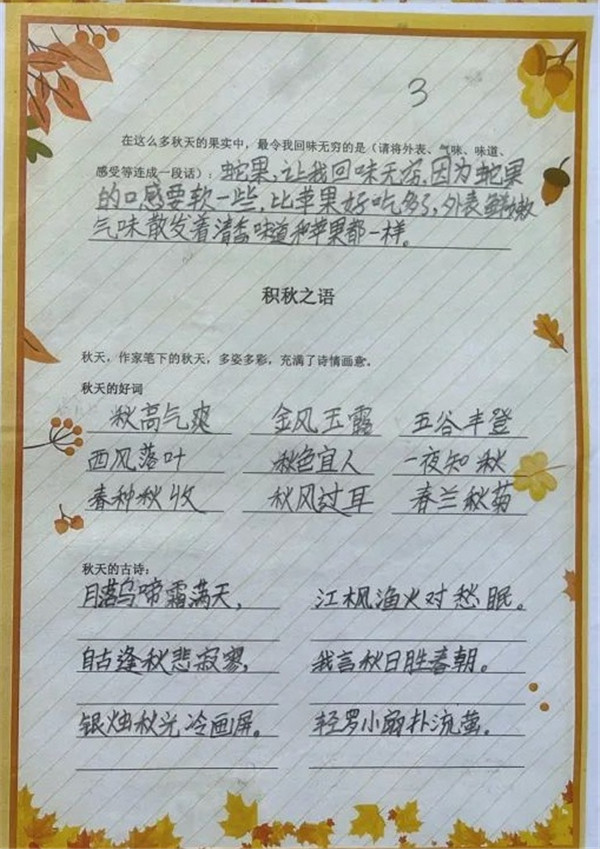 3
在这么多秋天的果实中，最令我回味无穷的是（请将外表、气味、味道、
感受等连成一段话）：蛇果，让我回味无穷，因为蛇果
的口感要软一些，比苹果好吃多了，外表鲜嫩
气味散发着清香味道和苹果都一样。
积秋之语
秋天，作家笔下的秋天，多姿多彩，充满了诗情画意。
秋天的好词
秋高气爽 金风玉露 五谷丰登
西风落叶 秋色宜人 一夜知秋
春种秋收 秋风过耳 春兰秋菊
秋天的古诗：
月落乌啼霜满天， 江枫渔火对愁眠。
自古逢秋悲寂寥， 我言秋日胜春朝。
银烛秋光冷画屏。 轻罗小扇扑流萤。